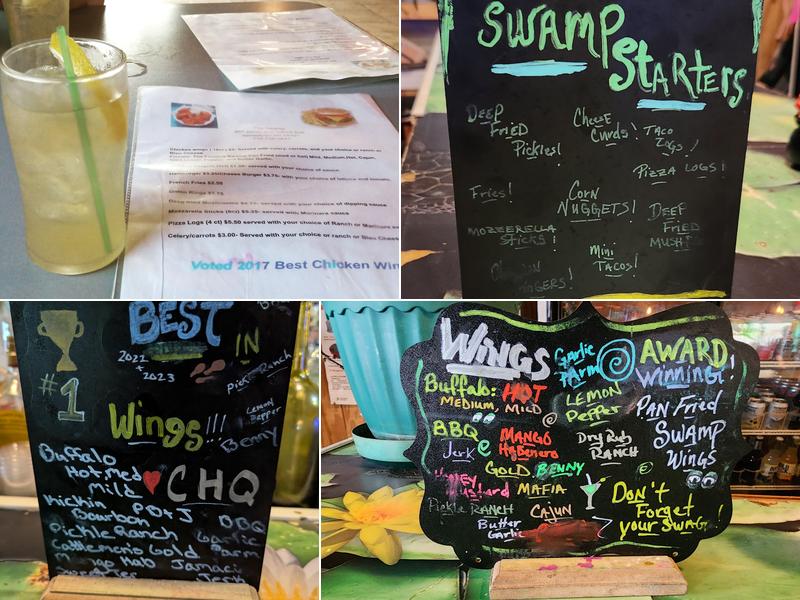 Mozzarella Sticks (6ct) $5.25- served with Marinara sauce
Pizza Logs (4 ct) $5.50 served with your choice of Ranch or Marinara
Celery/carrots $3.00- Served with your choice or ranch or Bleu Chees
French Fries $2.50
Voted 2017 Best Chicken Win
SWAMP
STARTERS
DEEP
FRIED
Pickles!
CHEESE
Curds!
TACO
LOGS!
PIZZA LOGS!
Fries!
CORN
NUGGETS!
MOZZERELLA
STICKS!
DEEF
FRIED
MUSH
Mini
TACOS!
BEST
2022
+
2023
IN
#1
Pickle Ranch
Wings!!!
LEMON
Pepper
Benny
Buffalo
Hot, med
Mild
CHQ
Kickin
Bourbon
PB+J
BBQ
Pickle Ranch
Garlic
Parm
Cattlemens Gold
Hab
Jamaci
Jerk
WINGS
Garlic
Parm
AWARD
Winning!
Buffalo: HOT
MEDIUM, MILD
LEMON
Pepper
PAN Fried
SWAMP
WINGS
BBQ
Jerk
MANGO
HaBenero
Dry Rub
RANCH
GOLD BENNY
Honey Mustard
MAFIA
Pickle RANCH
CAJUN
Butter
Garlic
Don't
Forget
your SWAG!